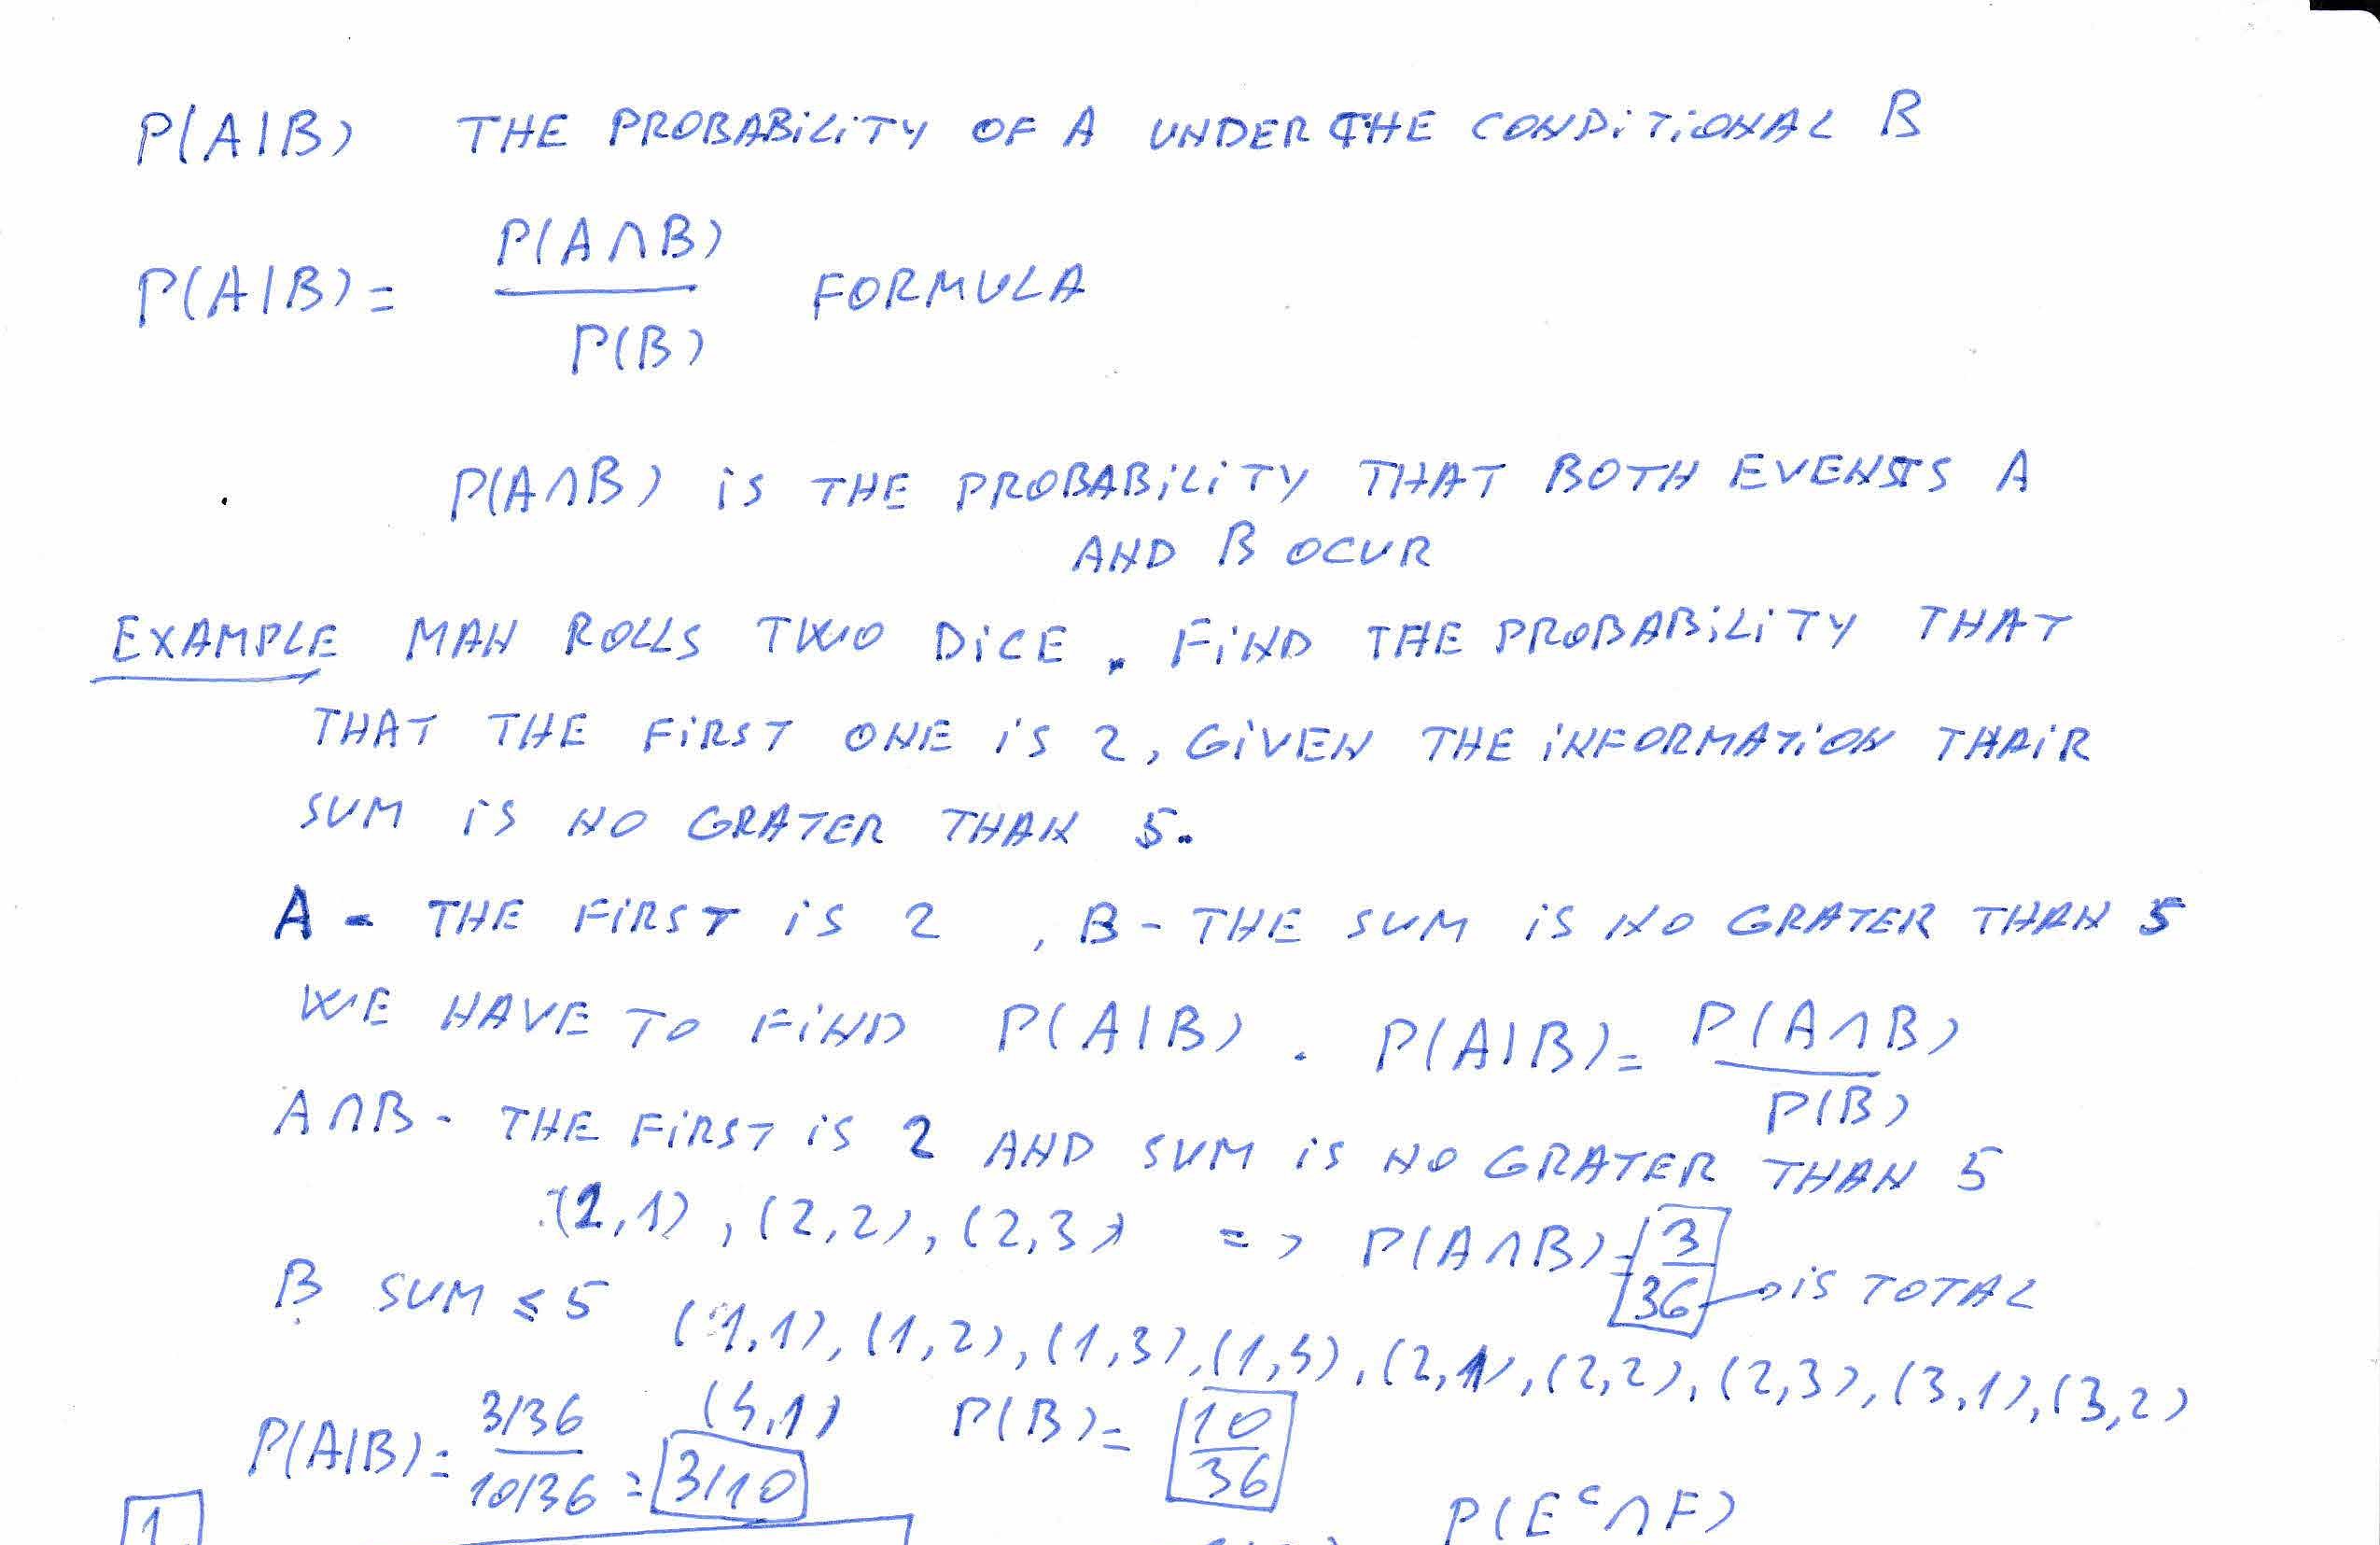 P(A|B) THE PROBABILITY OF A UNDER THE CONDITIONAL B
P(A|B) = P(A∩B) / P(B) FORMULA
P(A∩B) IS THE PROBABILITY THAT BOTH EVENTS A
AND B OCUR
EXAMPLE MAN ROLLS TWO DICE. FIND THE PROBABILITY THAT
THAT THE FIRST ONE IS 2, GIVEN THE INFORMATION THAIR
SUM IS NO GRATER THAN 5.
A - THE FIRST IS 2, B - THE SUM IS NO GRATER THAN 5
WE HAVE TO FIND P(A|B). P(A|B) = P(A∩B) / P(B)
A∩B - THE FIRST IS 2 AND SUM IS NO GRATER THAN 5
(2,1), (2,2), (2,3) => P(A∩B) = 3/36 IS TOTAL
B SUM ≤ 5 (1,1), (1,2), (1,3), (1,4), (2,1), (2,2), (2,3), (3,1), (3,2)
(4,1) P(B) = 10/36
P(A|B) = 3/36 / 10/36 = 3/10
1 P(E^c∩F)